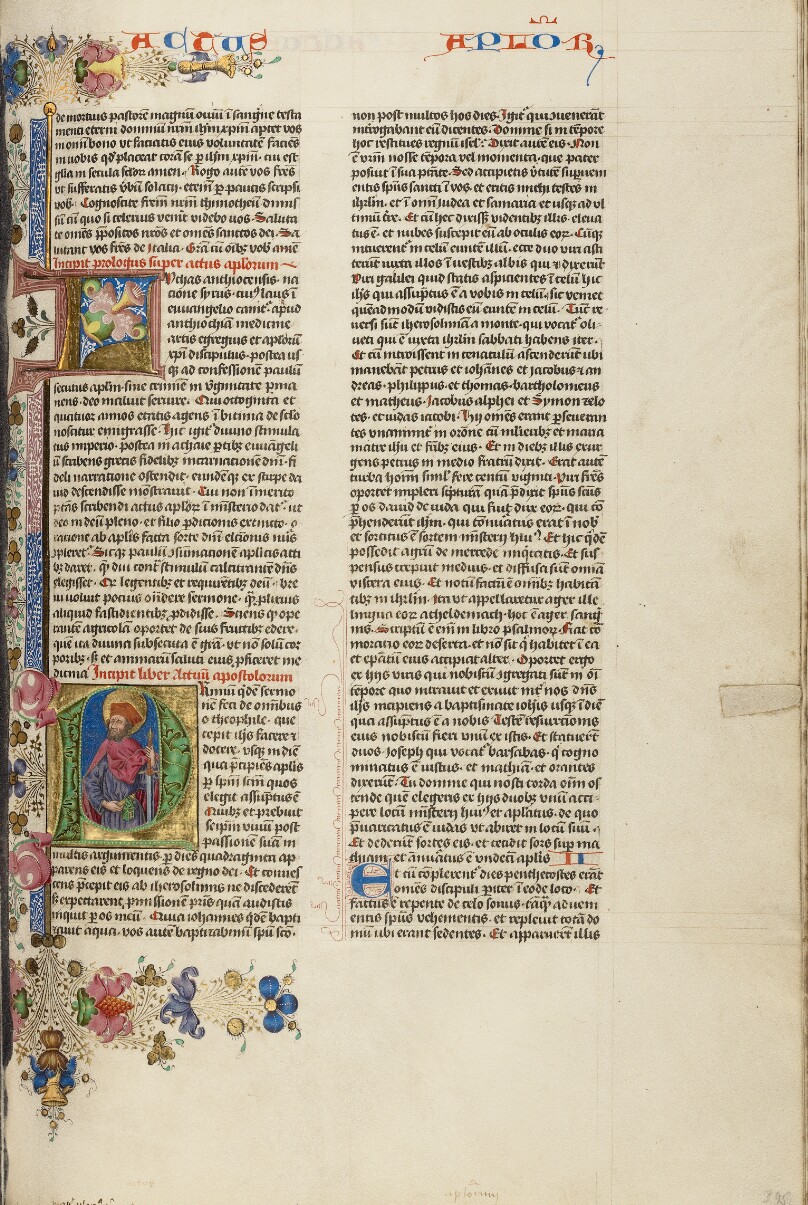 ACTUS APLO℞
de mortuis pastorē magnū ouiū ī sangīne testa
menti eterni dominū nr̄m ihm̄ xpm̄ aptet vos
in om̄i bono ut faciatis eius voluntatē faciēs
in uobis qd̄ placeat corā se ꝑ ihm̄ xpm̄. cui est
glīa in secula sclo℞ amen. Rogo autē vos frēs
ut sufferatis v̄bū solacij. etenī ꝑ paucis scripsi
vob̄. Cognoscite frēm nr̄m thimotheū dimis
sū cū quo si celerius venit videbo uos. Saluta
te omēs p̄positos vr̄os et omēs sanctos dei. Sa
lutant vos frēs de Italia. Gr̄a cū oīb; vob̄ amē
Incipit prologus super actus aplorum
Lvchas anthiocensis. na
cione syrus. cui᷒ laus ī
euuangelio canit᷒. apud
anthiochiā medicine
artis egregius et aplo℞
xpī discipulus. postea us
q; ad confessionē paulū
secutus aplm̄. sine crimīe in v̄ginitate ꝑma
nens. deo maluit seruire. Qui octoginta et
quatuor annos etatis agens ī bitinia defclō
noscitur emigrasse. Hic igit᷒ diuīo stimula
tus imperio. postea in achaie ꝑtib; euuāgeli
ū scribens grecis fidelib; incarnationē dnī. fi
deli narratione ostendit. eundēq; ex stirpe da
uid descendisse mōstrauit. Cui non īmerito
ptās scribendi actus aplo℞ ī misterio dat᷒. ut
deo in deū pleno. et filio ꝑdicionis extincto. o
racione ab aplis facta sorte dnī elc̄ionis nūs
ꝯpleret᷒. Sicq; paulū ꝯsūmationē aplicis acti
b; daret. q̄ diu cont᷒ stimulū calcitrantē dn̄s
elegisset. Qd̄ legentib; et requirētib; deū. bre
ui uolui pocius oñdere sermone. q̄ꝫ plixius
aliquid fastidientib; ꝓdidisse. Sciens q̄ ope
rantē agricolā oportet de suis fructib; edere.
quē ita diuina subsecuta ē gr̄a. ut nō solū cor
porib;. sȝ et animarū saluti eius ꝓficeret me
dicina. Incipit liber Actuū apostolorum
Primū qdē sermo
nē feci de omībus
o theophile. que
cepit ih̄s facere ⁊
docere. usq; in diē
qua p̄cipiēs aplis
ꝑ spm̄ scm̄ quos
elegit assūptus ē
Quib; et prebuit
seip̄m viuū post
passionē suā in
multis argumentis ꝑ dies quadraginta ap
parens eis et loquens de regno dei. Et conues
cens p̄cepit eis ab iherosolimis ne discederēt
sȝ expectarent ꝓmissionē pr̄is quā audistis
inquit ꝑ os meū. Quia iohannes qdē bapti
zauit aqua. vos autē baptizabimī spū scō.
non post multos hos dies. Igit᷒ qui ꝯuenerāt
interrogabant eū dicentes. Domine si in tēpore
hoc restitues regnū isrl. Dixit autē eis. Non
ē vr̄m nosse tēpora vel momenta. que pater
posuit ī sua ptāte. Sed accipietis v̄tutē supueni
entis spūs sancti ī vos. et eritis michi testes in
ihrlm̄. et ī om̄i iudea et samaria et usq; ad vl
timū t̄re. Et cū hec dixisȝ videntib; illis. eleua
tus ē. et nubes suscepit eū ab oculis eo℞. Cūq;
intuerent᷒ in celū euntē illū. ecce duo viri asti
terūt iuxta illos ī uestib; albis qui ⁊ dixerūt
Viri galilei quid statis aspicientes ī celū. hic
ih̄s qui assūptus ē a vobis in celū. sic veniet
quēadmodū vidistis eū euntē in celū. Tūc re
uersi sūt iherosolimā a monte. qui vocat᷒ oli
ueti qui ē iuxta ihrlm̄ sabbati habens iter.
Et cū introissent in cenaculū ascenderūt ubi
manebāt petrus et iohānes et iacobus ⁊ an
dreas. philippus et thomas. bartholomeus
et matheus. Jacobus alphei et Symon zelo
tes. et iudas iacobi. Hij omēs erant ꝑseueran
tes vnanimit᷒ in orōne cū mlīerib; et maria
matre ihū et frīb; eius. Et in dieb; illis exur
gens petrus in medio fratrū dixit. Erat autē
turba hoīm siml᷒ fere centū viginti. Viri frēs
oportet impleri scpturā quā p̄dixit spūs scūs
ꝑ os dauid de iuda qui fuit dux eo℞. qui cō
p̄henderūt ihm̄. qui ꝯnūatus erat ī nob̄
et sortitus ē sortem mīstery hui᷒. Et hic qdē
possedit agrū de mercede iniqtatis. Et sus
pensus crepuit medius. et diffusa sūt omīa
viscera eius. Et notū factū ē omīb; habitā
tib; in ihrlm̄. ita ut appellaretur ager ille
lingua eo℞ acheldemach. hoc ē ager sangī
nis. Scriptū ē em̄ in libro psalmo℞. Fiat cō
moracio eo℞ deserta. et nō sit q̄ habitet ī ea
et epātū eius accipiat alter. Oportet ergo
ex hijs viris qui nobiscū ꝯgregati sūt in oī
tēpore quo intrauit et exiuit int᷒ nos dn̄s
ih̄s incipiens a baptismate ioh̄is usq; ī diē
qua assūptus ē a nobis. Testē resurrectionis
eius nobiscū fieri vnū ex istis. Et statuerūt
duos. Joseph qui vocat᷒ barsabas. q̄ cogno
minatus ē iustus. et mathiā. et orantes
dixerūt. Tu domine qui nosti corda oīm os
tende quē elegeris ex hijs duob; vnū acci
pere locū mīstery hui᷒ et aplatus. de quo
p̄uaricatus ē iudas ut abiret in locū suū.
Et dederūt sortes eis. et cecidit sors sup ma
thiam. et ānūatus ē undecī aplis II
Et cū complerent᷒ dies penthecostes erāt
omēs discipuli pariter ī eodē loco. Et
factus ē repente de celo sonus. tāq̄ aduenī
entis spūs vehementis. et repleuit totā do
mū ubi erant sedentes. Et apparuerūt illis